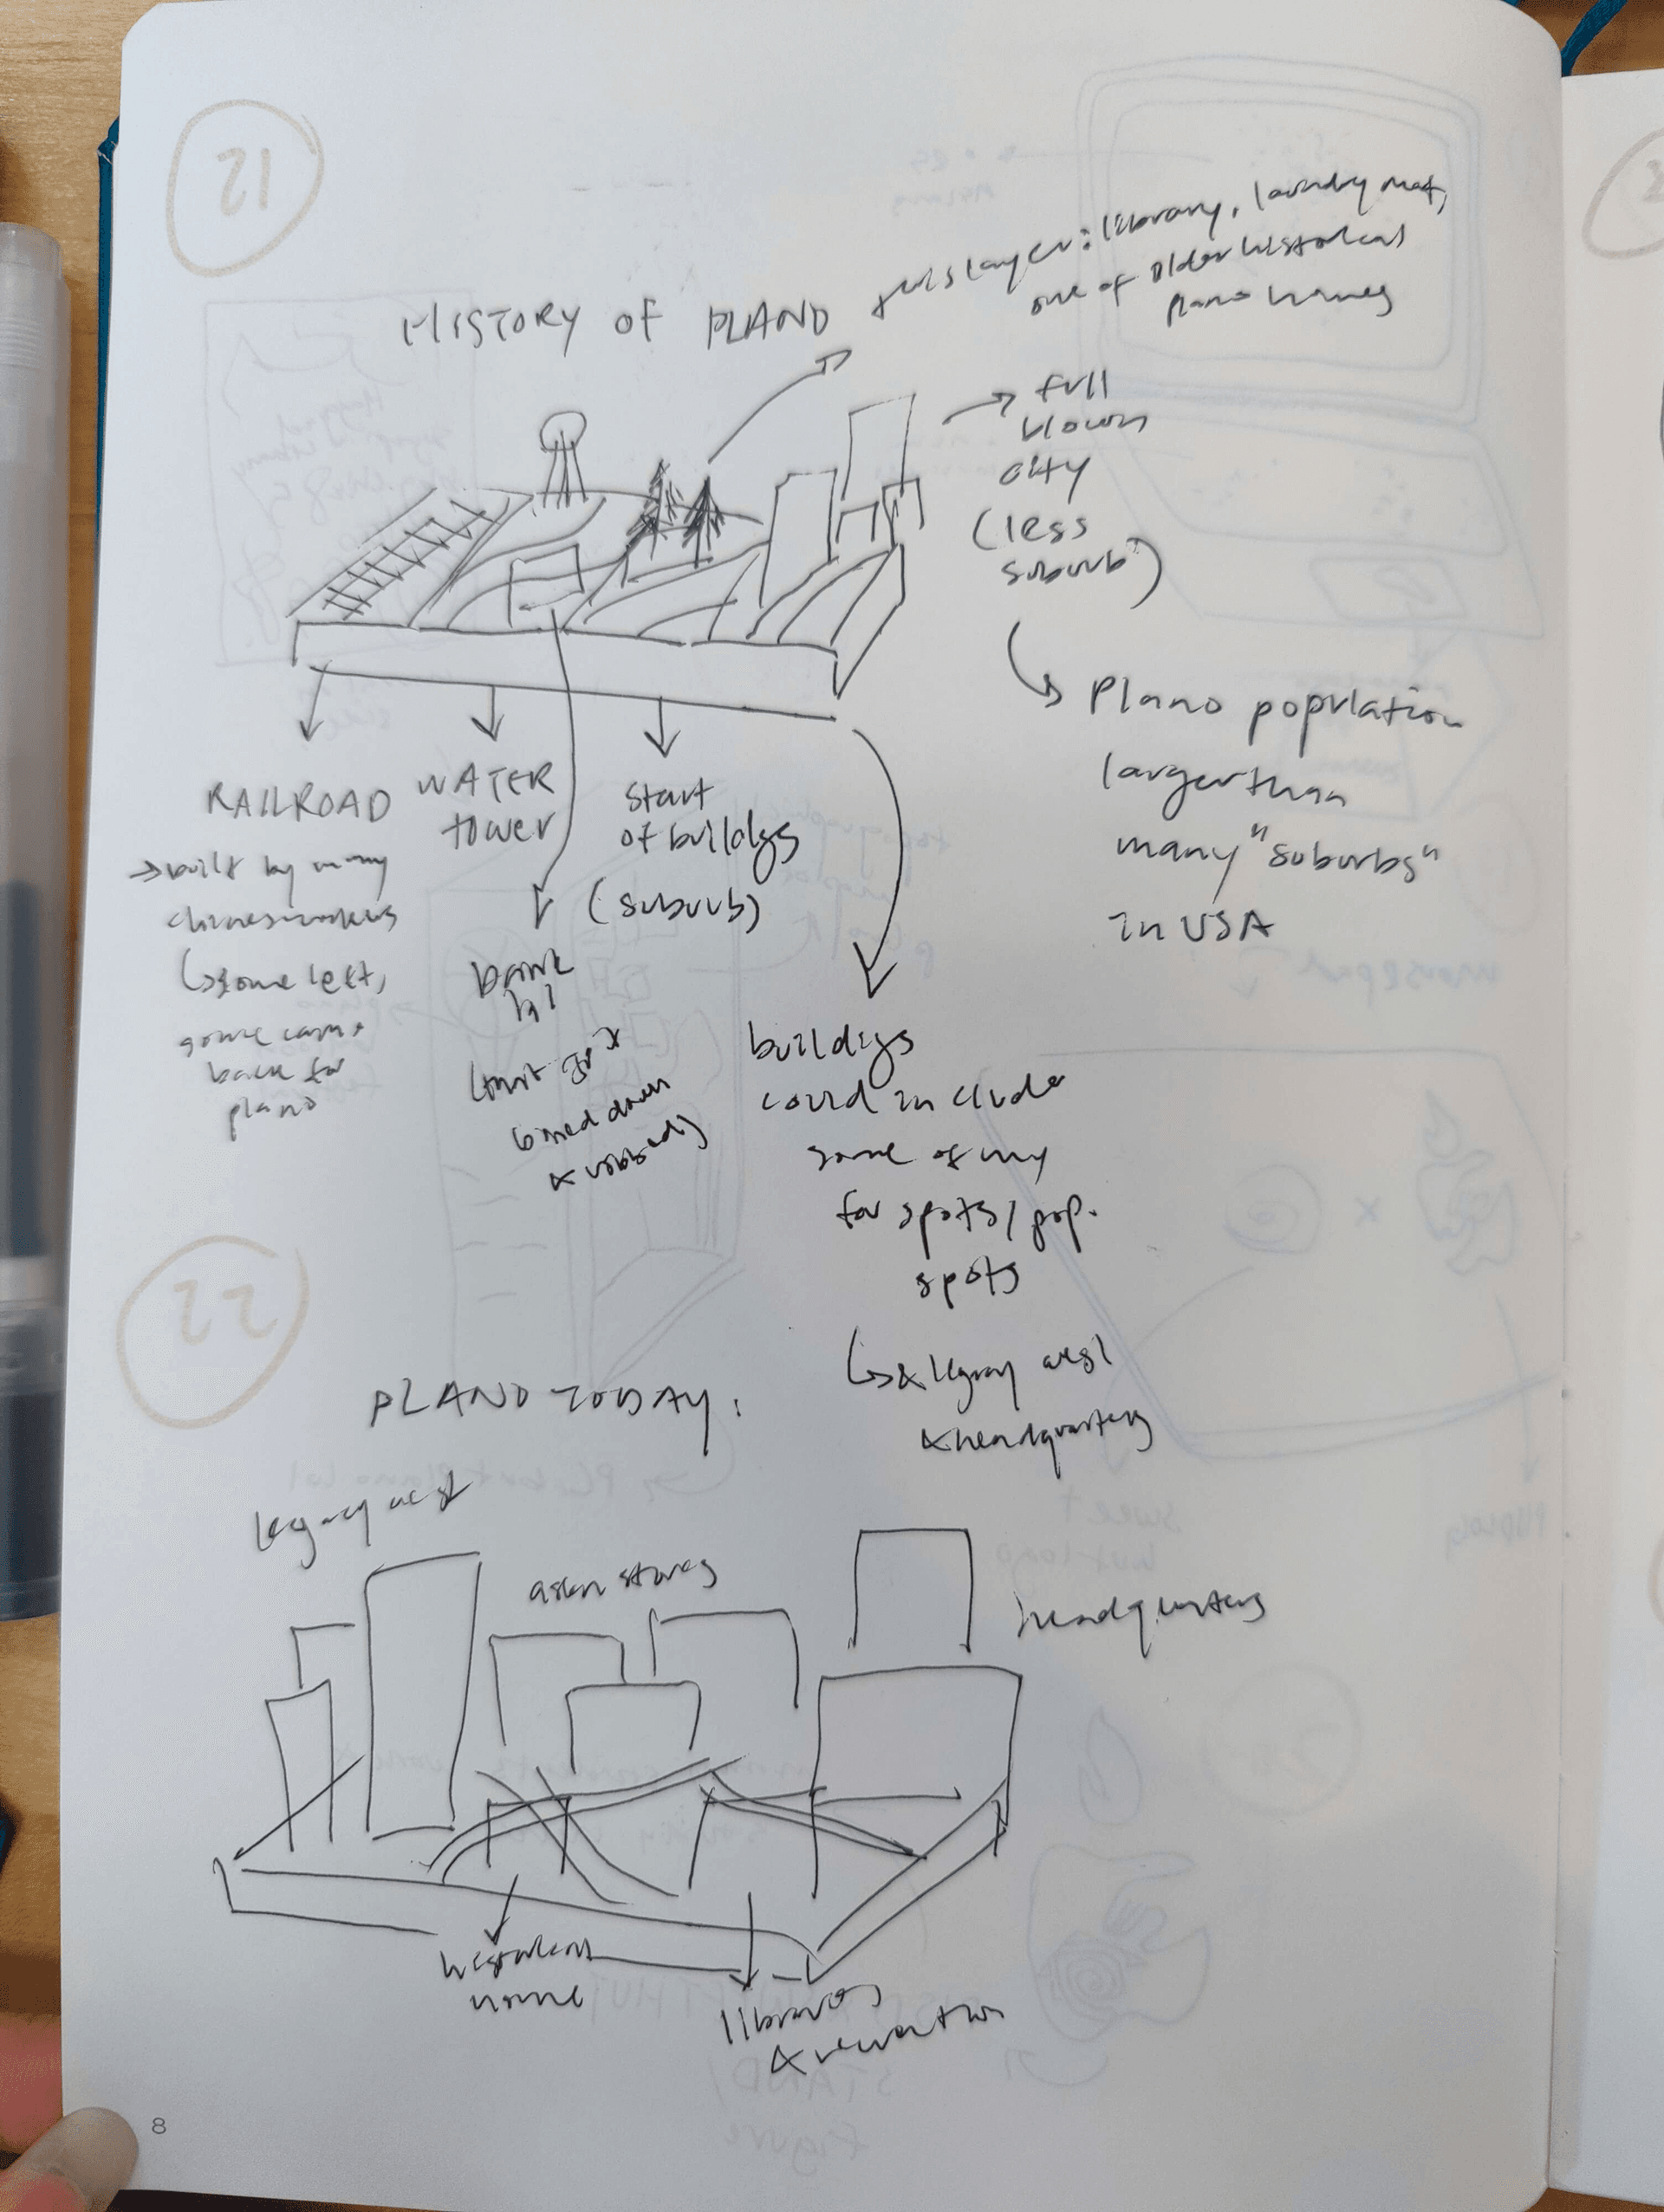 21
HISTORY OF PLANO
this layer: library, laundry mat,
one of older historical
plano homes
full
blown
city
(less
suburb)
Plano population
larger than
many "suburbs"
in USA
RAILROAD
→ built by many
chinese workers
↳ some left,
some came
back for
plano
WATER
tower
bank
(that got
burned down
& robbed)
start
of buildgs
(suburb)
buildigs
could include
some of my
fav spots/pop.
spots
↳ & legacy west
& headquarters
22
PLANO TODAY:
legacy west
asian stores
headquarters
historical
home
librarys
& recreation
8